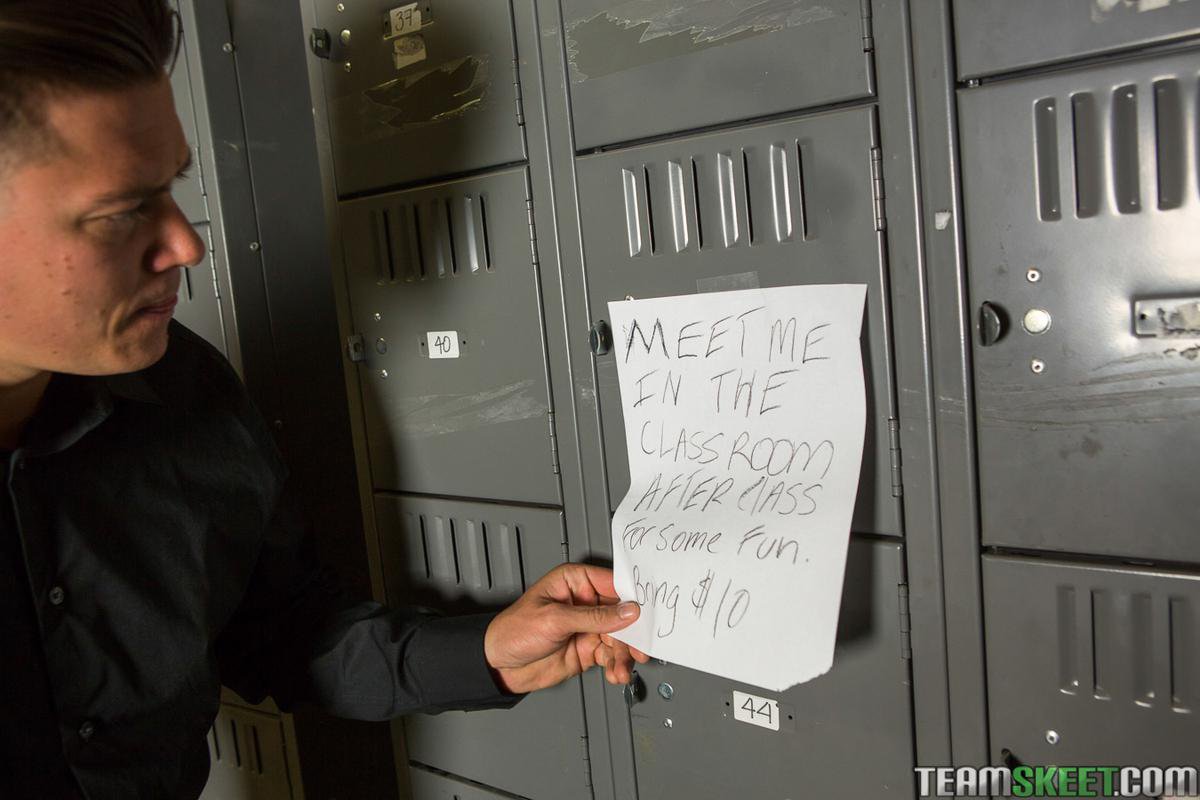 37
40
MEET ME
IN THE
CLASSROOM
AFTER CLASS
For Some Fun.
Bring $10
44
TEAMSKEET.COM